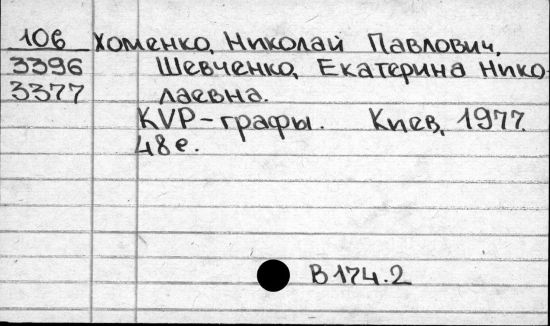 106 Хоменко, Николай Павлович.
3396 Шевченко, Екатерина Нико
3377 лаевна.
KVP-графы. Киев, 1977.
48 с.
В174.2